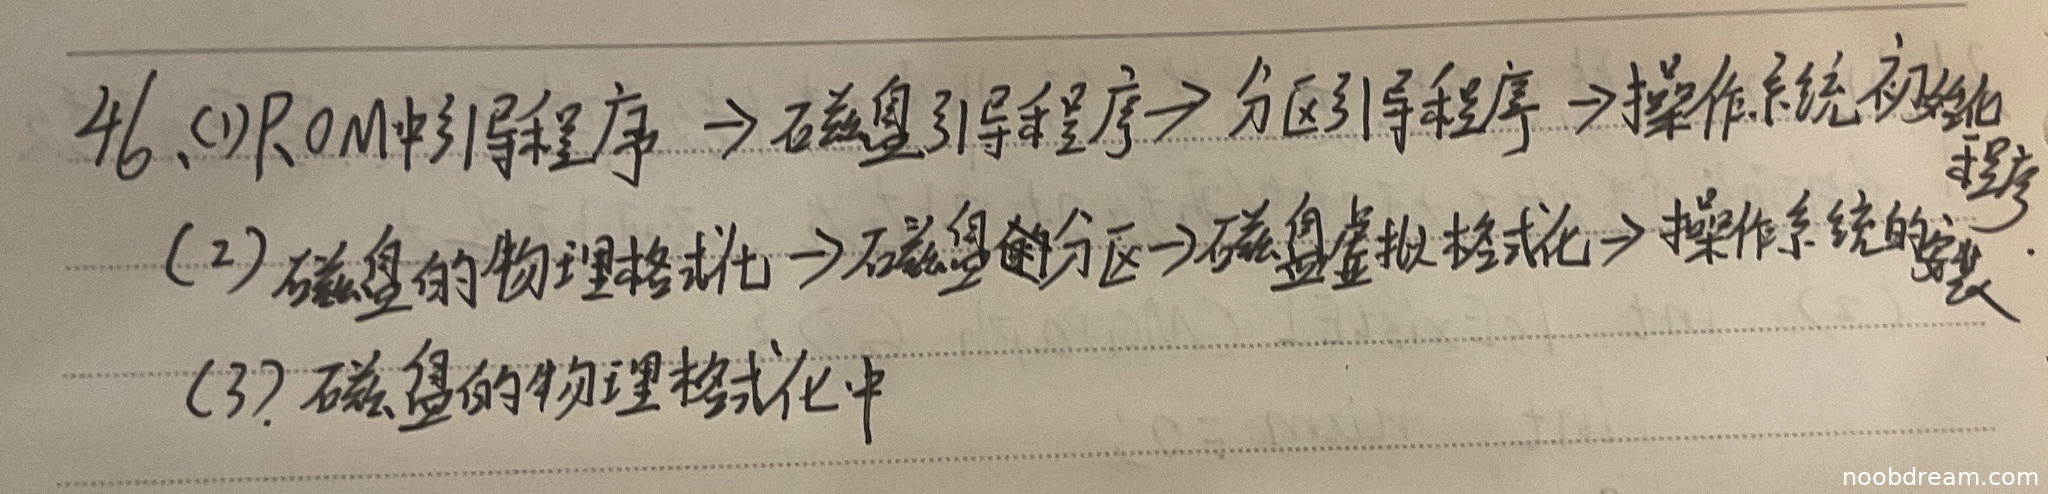 46、(1)ROM中引导程序→磁盘引导程序→分区引导程序→操作系统初始化程序.
(2)磁盘的物理格式化→磁盘分区→磁盘虚拟格式化→操作系统的安装
(3).磁盘的物理格式化中
noobdream.com